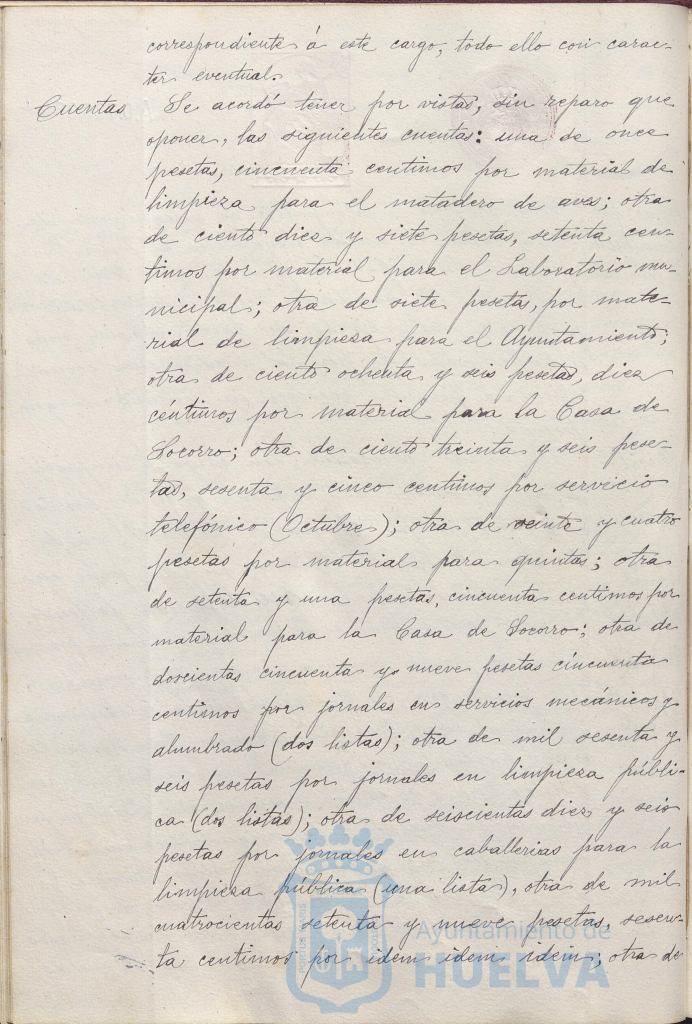 correspondiente á este cargo, todo ello con carac-
ter eventual.
Cuentas
Se acordó tener por vistas, sin reparo que
oponer, las siguientes cuentas: una de once
pesetas, cincuenta centimos por material de
limpieza para el matadero de aves; otra
de ciento diez y siete pesetas, setenta cen-
timos por material para el Laboratorio mu-
nicipal; otra de siete pesetas, por mate-
rial de limpieza para el Ayuntamiento;
otra de ciento ochenta y seis pesetas, diez
céntimos por material para la Casa de
Socorro; otra de ciento treinta y seis pese-
tas, sesenta y cinco centimos por servicio
telefónico (Octubre); otra de veinte y cuatro
pesetas por material para quintas; otra
de setenta y una pesetas, cincuenta centimos por
material para la Casa de Socorro; otra de
doscientas cincuenta y nueve pesetas cincuenta
centimos por jornales en servicios mecánicos y
alumbrado (dos listas); otra de mil sesenta y
seis pesetas por jornales en limpieza públi-
ca (dos listas); otra de seiscientas diez y seis
pesetas por jornales en caballerias para la
limpieza pública (una lista), otra de mil
cuatrocientas setenta y nueve pesetas, sesen-
ta centimos por idem idem idem; otra de
Ayuntamiento de
HUELVA